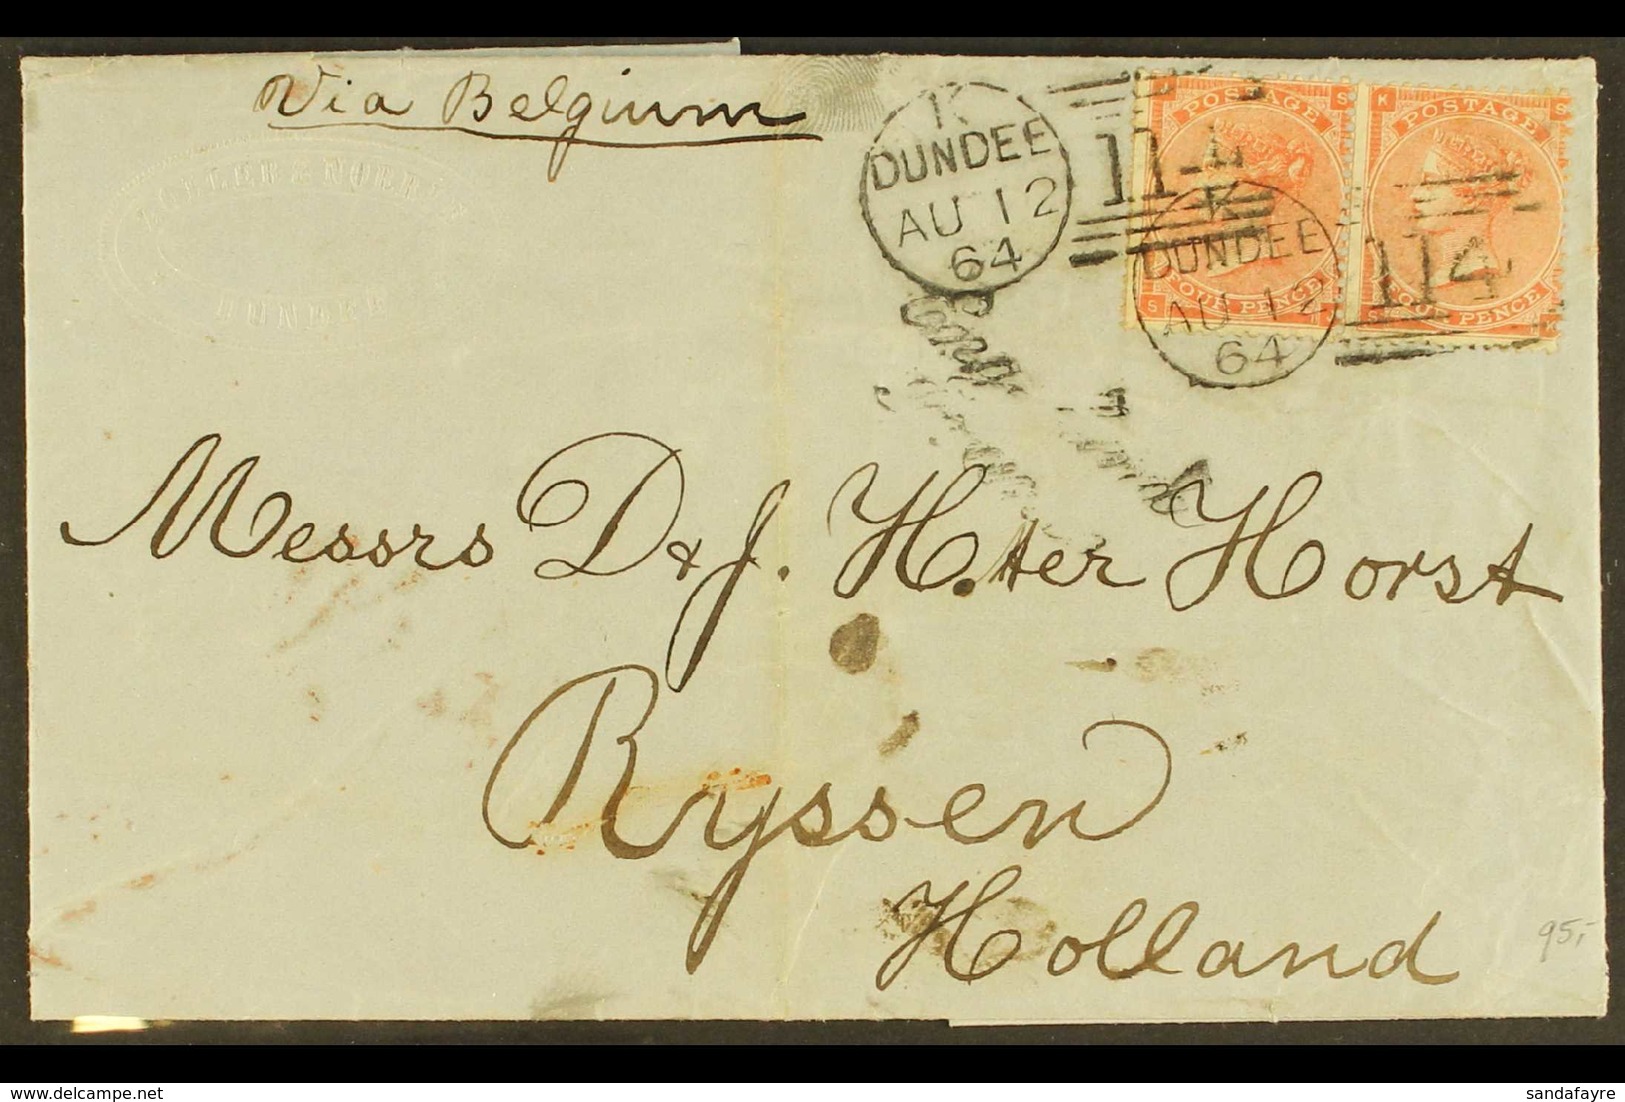 Via Belgium
DUNDEE
K
DUNDEE
AU 12
64
114
K
DUNDEE
AU 12
64
114
POSTAGE
FOUR PENCE
K
S
POSTAGE
FOUR PENCE
Messrs D & J. H. ter Horst
Ryssen
Holland
95,-
sandafayre